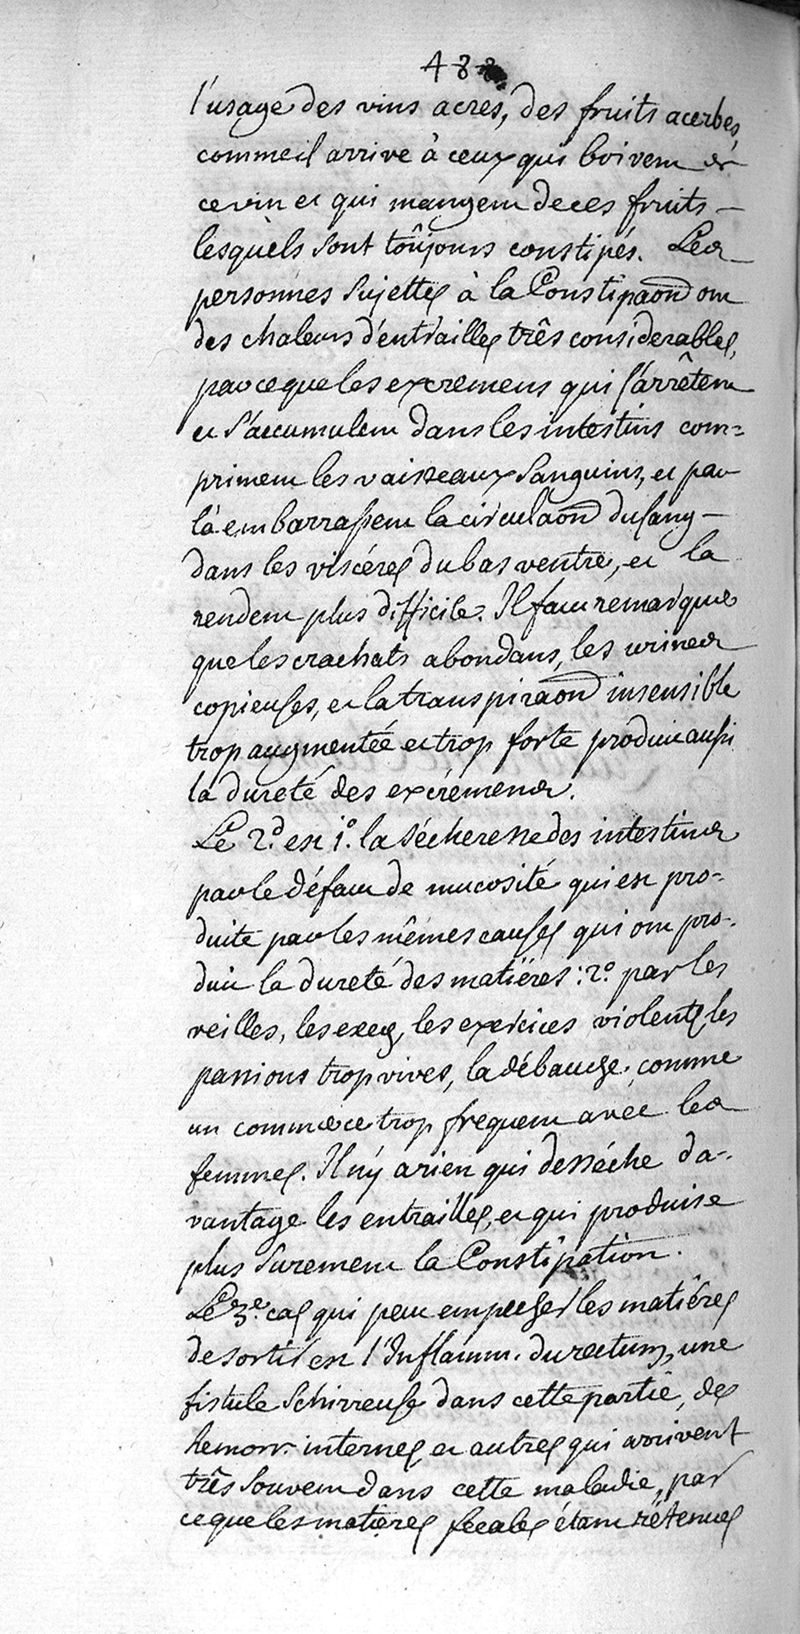 488
l'usage des vins acres, des fruits acerbes,
comme il arrive à ceux qui boivent de
ce vin et qui mangent de ces fruits —
lesquels sont toûjours constipés. Les
personnes sujettes à la Constipaon ont
des chaleurs d'entrailles três considerables,
parceque les excremens qui s'arrêtent
et s'accumulent dans les intestins com=
priment les vaisseaux sanguins, et par
là embarrassent la circulaon du sang —
dans les viscéres du bas ventre, et la
rendent plus difficile. Il faut remarquer
que les crachats abondans, les urines
copieuses, et la transpiraon insensible
trop augmentée et trop forte produit aussi
la dureté des excrémens.
Le 2.d est 1.o la sécheresse des intestins
par le défaut de mucosité qui est pro-
duite par les mêmes causes qui ont pro-
duit la dureté des matiéres : 2.o par les
veilles, les exces, les exercices violents, les
passions trop vives, la débauche, comme
un commerce trop frequent avec les
femmes. Il n'ÿ a rien qui desséche da-
vantage les entrailles, et qui produise
plus surement la Constipation.
Le 3.e cas qui peut empecher les matiéres
de sortir est l'Inflamm. du rectum, une
fistule schirreuse dans cette partie, des
hemorr. internes et autres qui arrivent
três souvent dans cette maladie, par
ce que les matieres fecales étant rétenues